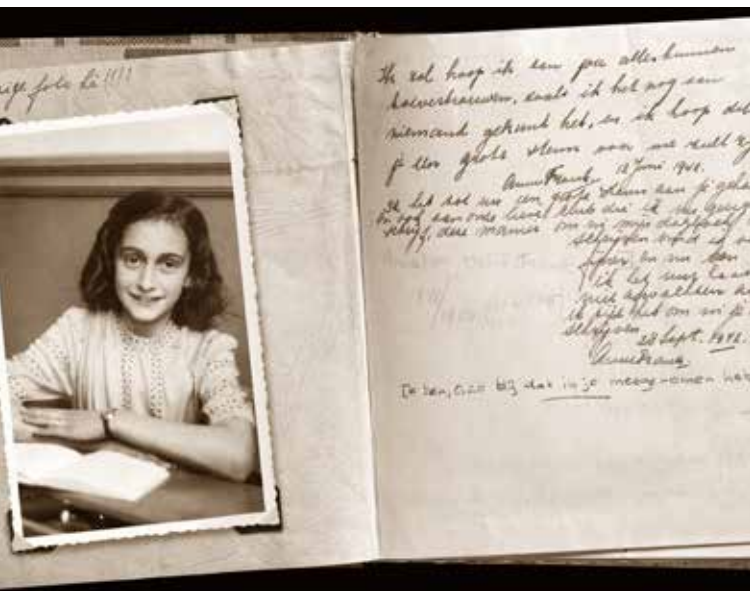 foto hè!!!!
Ik zal hoop ik aan jou alles kunnen
toevertrouwen, zoals ik het nog aan
niemand gekund heb, en ik hoop dat
je een grote steun voor me zult
Anne Frank. 12 Juni 1942.
Ik heb tot nu een grote steun aan je
en ook aan onze lieve club die ik nu
schrijf, deze manier om in mijn dagboek
schrijven vind ik
en nu kan
ik het uur
niet afwachten
ik tijd heb om in je
schrijven
28 Sept. 1942.
Anne Frank.
Ik ben, o, zo blij dat ik je meegenomen heb